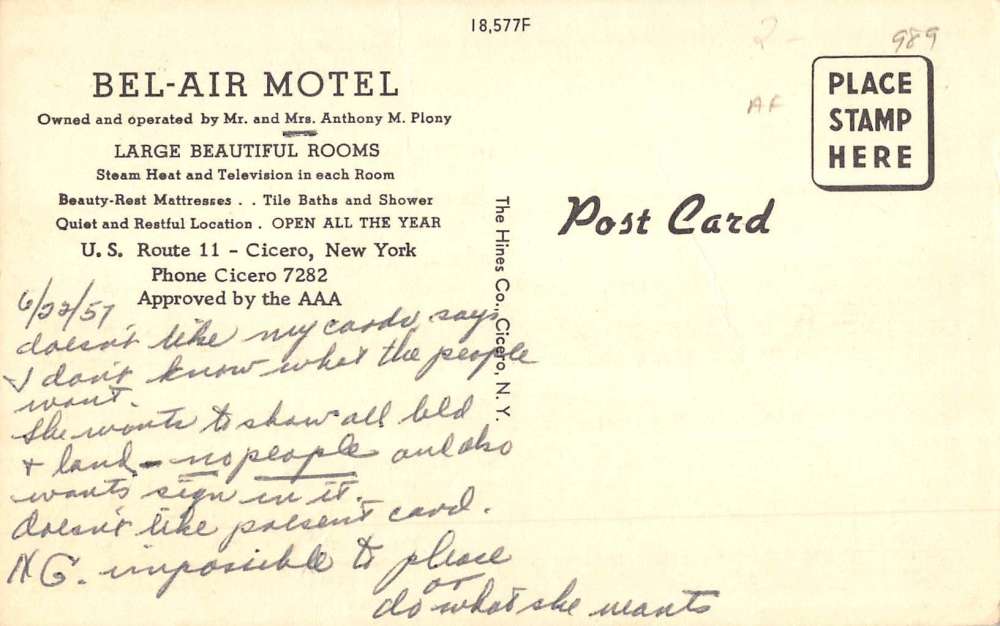 18,577F
2-
989
AF
BEL-AIR MOTEL
Owned and operated by Mr. and Mrs. Anthony M. Plony
LARGE BEAUTIFUL ROOMS
Steam Heat and Television in each Room
Beauty-Rest Mattresses . . Tile Baths and Shower
Quiet and Restful Location . OPEN ALL THE YEAR
U. S. Route 11 - Cicero, New York
Phone Cicero 7282
Approved by the AAA
PLACE
STAMP
HERE
Post Card
The Hines Co., Cicero, N. Y.
6/22/57
doesn't like my cards, says
I don't know what the people
want.
She wants to show all bld
+ land - no people and also
wants sign in it.
doesn't like present card.
NG. impossible to please
or
do what she wants